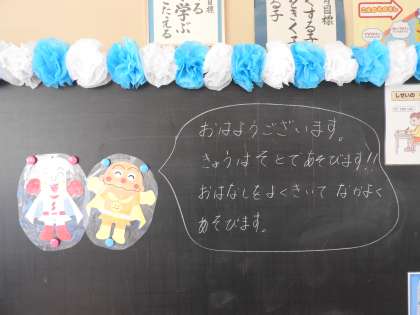 目標
学ぶ
こたえる
目標
くする子
きく子
しせいの
おはようございます。
きょうは そとで あそびます!!
おはなしを よくきいて なかよく
あそびます。